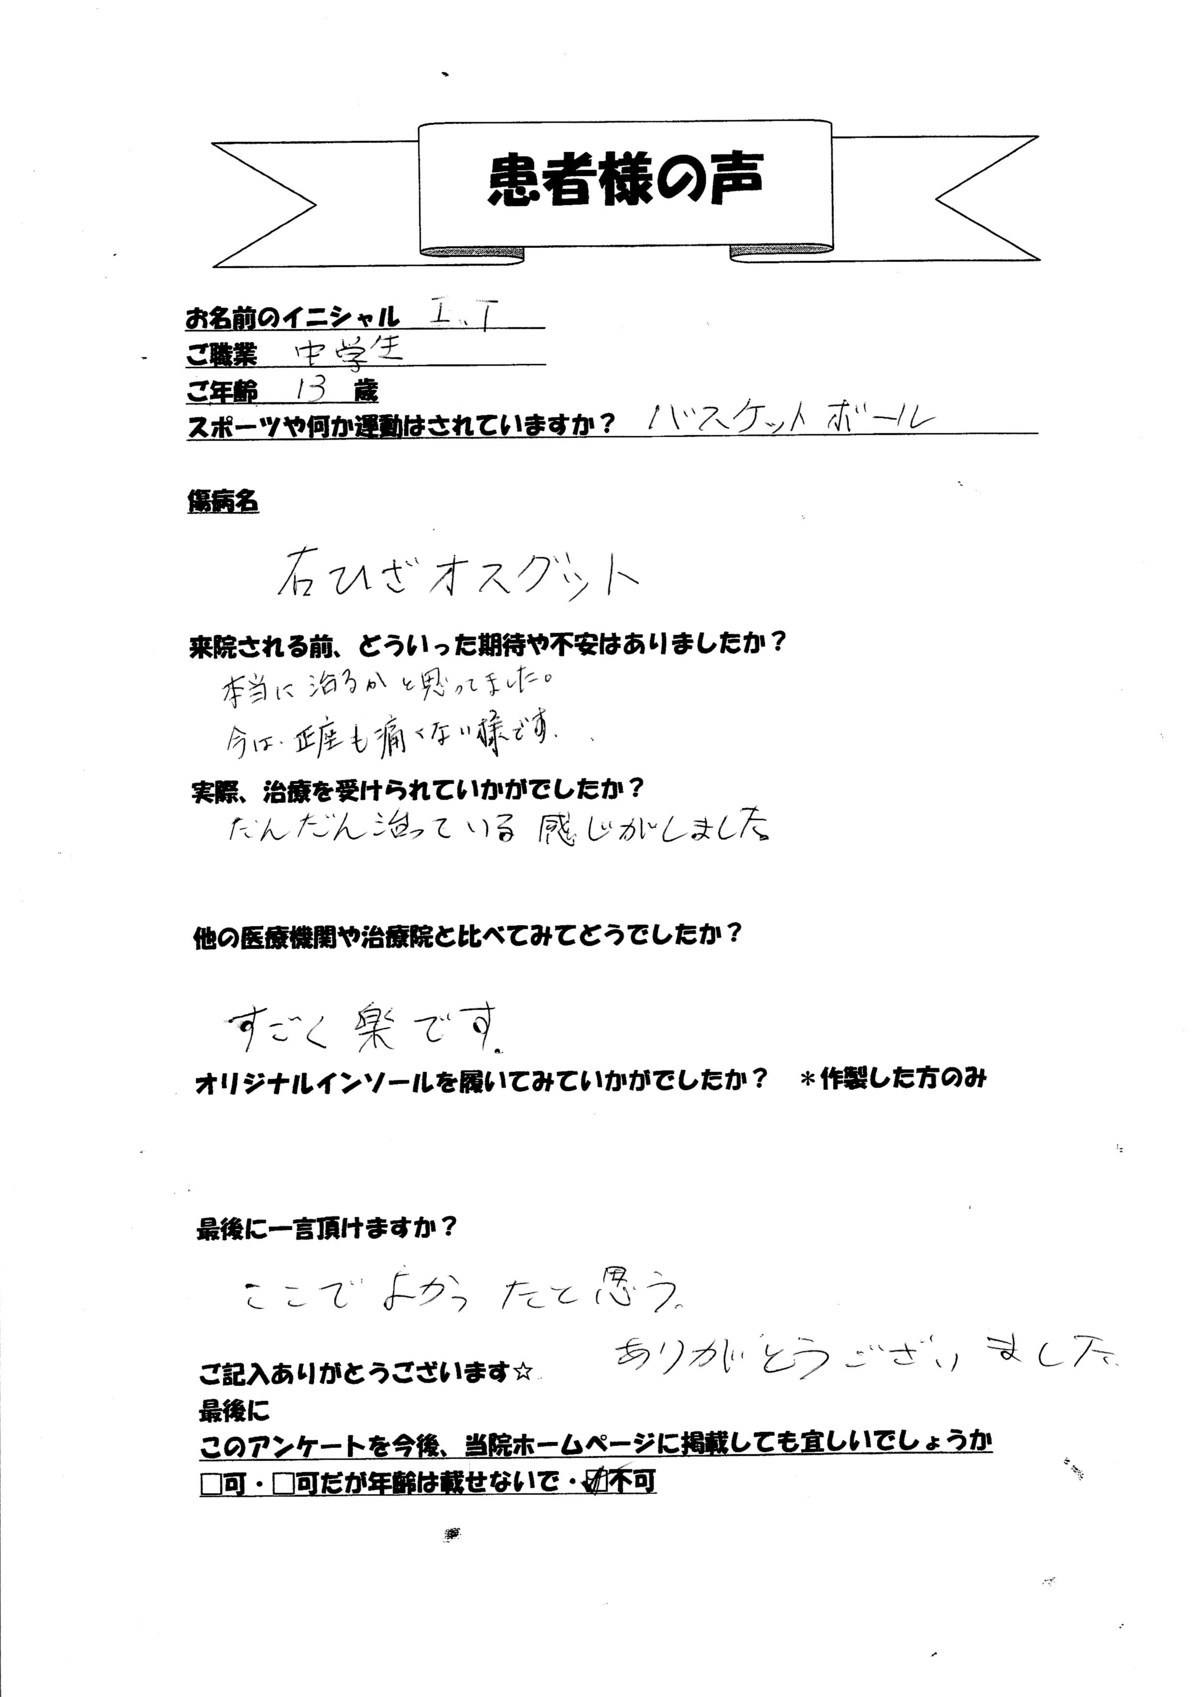 患者様の声
お名前のイニシャル I.T
ご職業 中学生
ご年齢 13 歳
スポーツや何か運動はされていますか? バスケットボール
傷病名
右ひざオスグット
来院される前、どういった期待や不安はありましたか?
本当に治るかと思ってました。
今は、正座も痛くない様です。
実際、治療を受けられていかがでしたか?
だんだん治っている感じがしました。
他の医療機関や治療院と比べてみてどうでしたか?
すごく楽です。
オリジナルインソールを履いてみていかがでしたか? *作製した方のみ
最後に一言頂けますか?
ここでよかったと思う。
ありがとうございました。
ご記入ありがとうございます☆
最後に
このアンケートを今後、当院ホームページに掲載しても宜しいでしょうか
□可・□可だが年齢は載せないで・☑不可